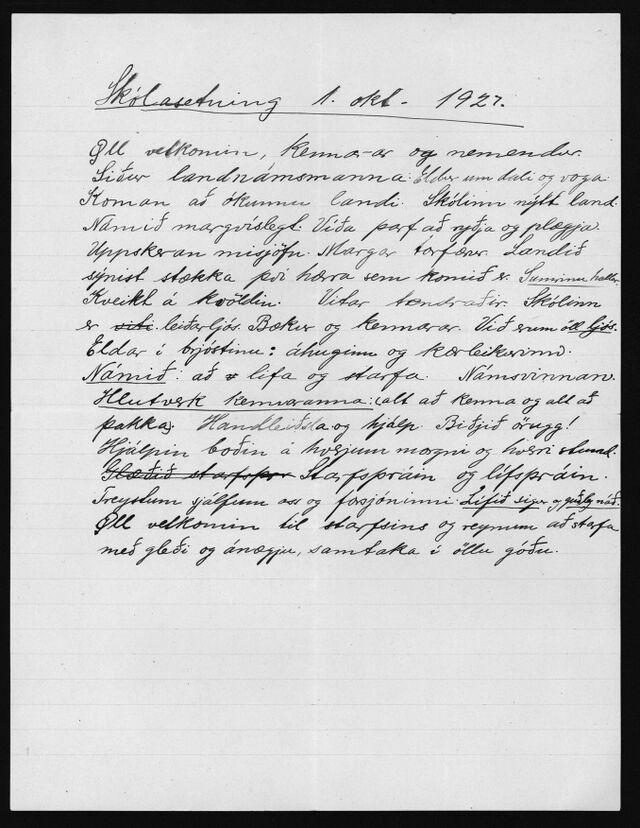 Skólasetning 1. okt. 1927.
Öll velkomin, kennarar og nemendur.
Siður landnámsmanna: Eldur um dali og voga.
Koman að ókunnu landi. Skólinn nýtt land.
Námið margvíslegt. Víða þarf að ryðja og plægja.
Uppskeran misjöfn. Margar torfærur. Landið
sýnist stækka því hærra sem komið er.
Kveikt á kvöldin. Vitar tendraðir. Skólinn
er viti leiðarljós. Bækur og kennarar. Við erum öll ljós.
Eldar í brjóstinu: áhuginn og kærleikurinn.
Námið: að lifa og starfa. Námsvinnan.
Hlutverk kennaranna: (alt að kenna og alt að
þakka). Handleiðsla og hjálp. Biðjið örugg!
Hjálpin boðin á hverjum morgni og hverri stund.
Glæðið starfsþrá Starfsþráin og lífsþráin.
Treystum sjálfum oss og forsjóninni. Lífið sigur og guðleg náð.
Öll velkomin til starfsins og reynum að starfa
með gleði og ánægju, samtaka í öllu góðu.